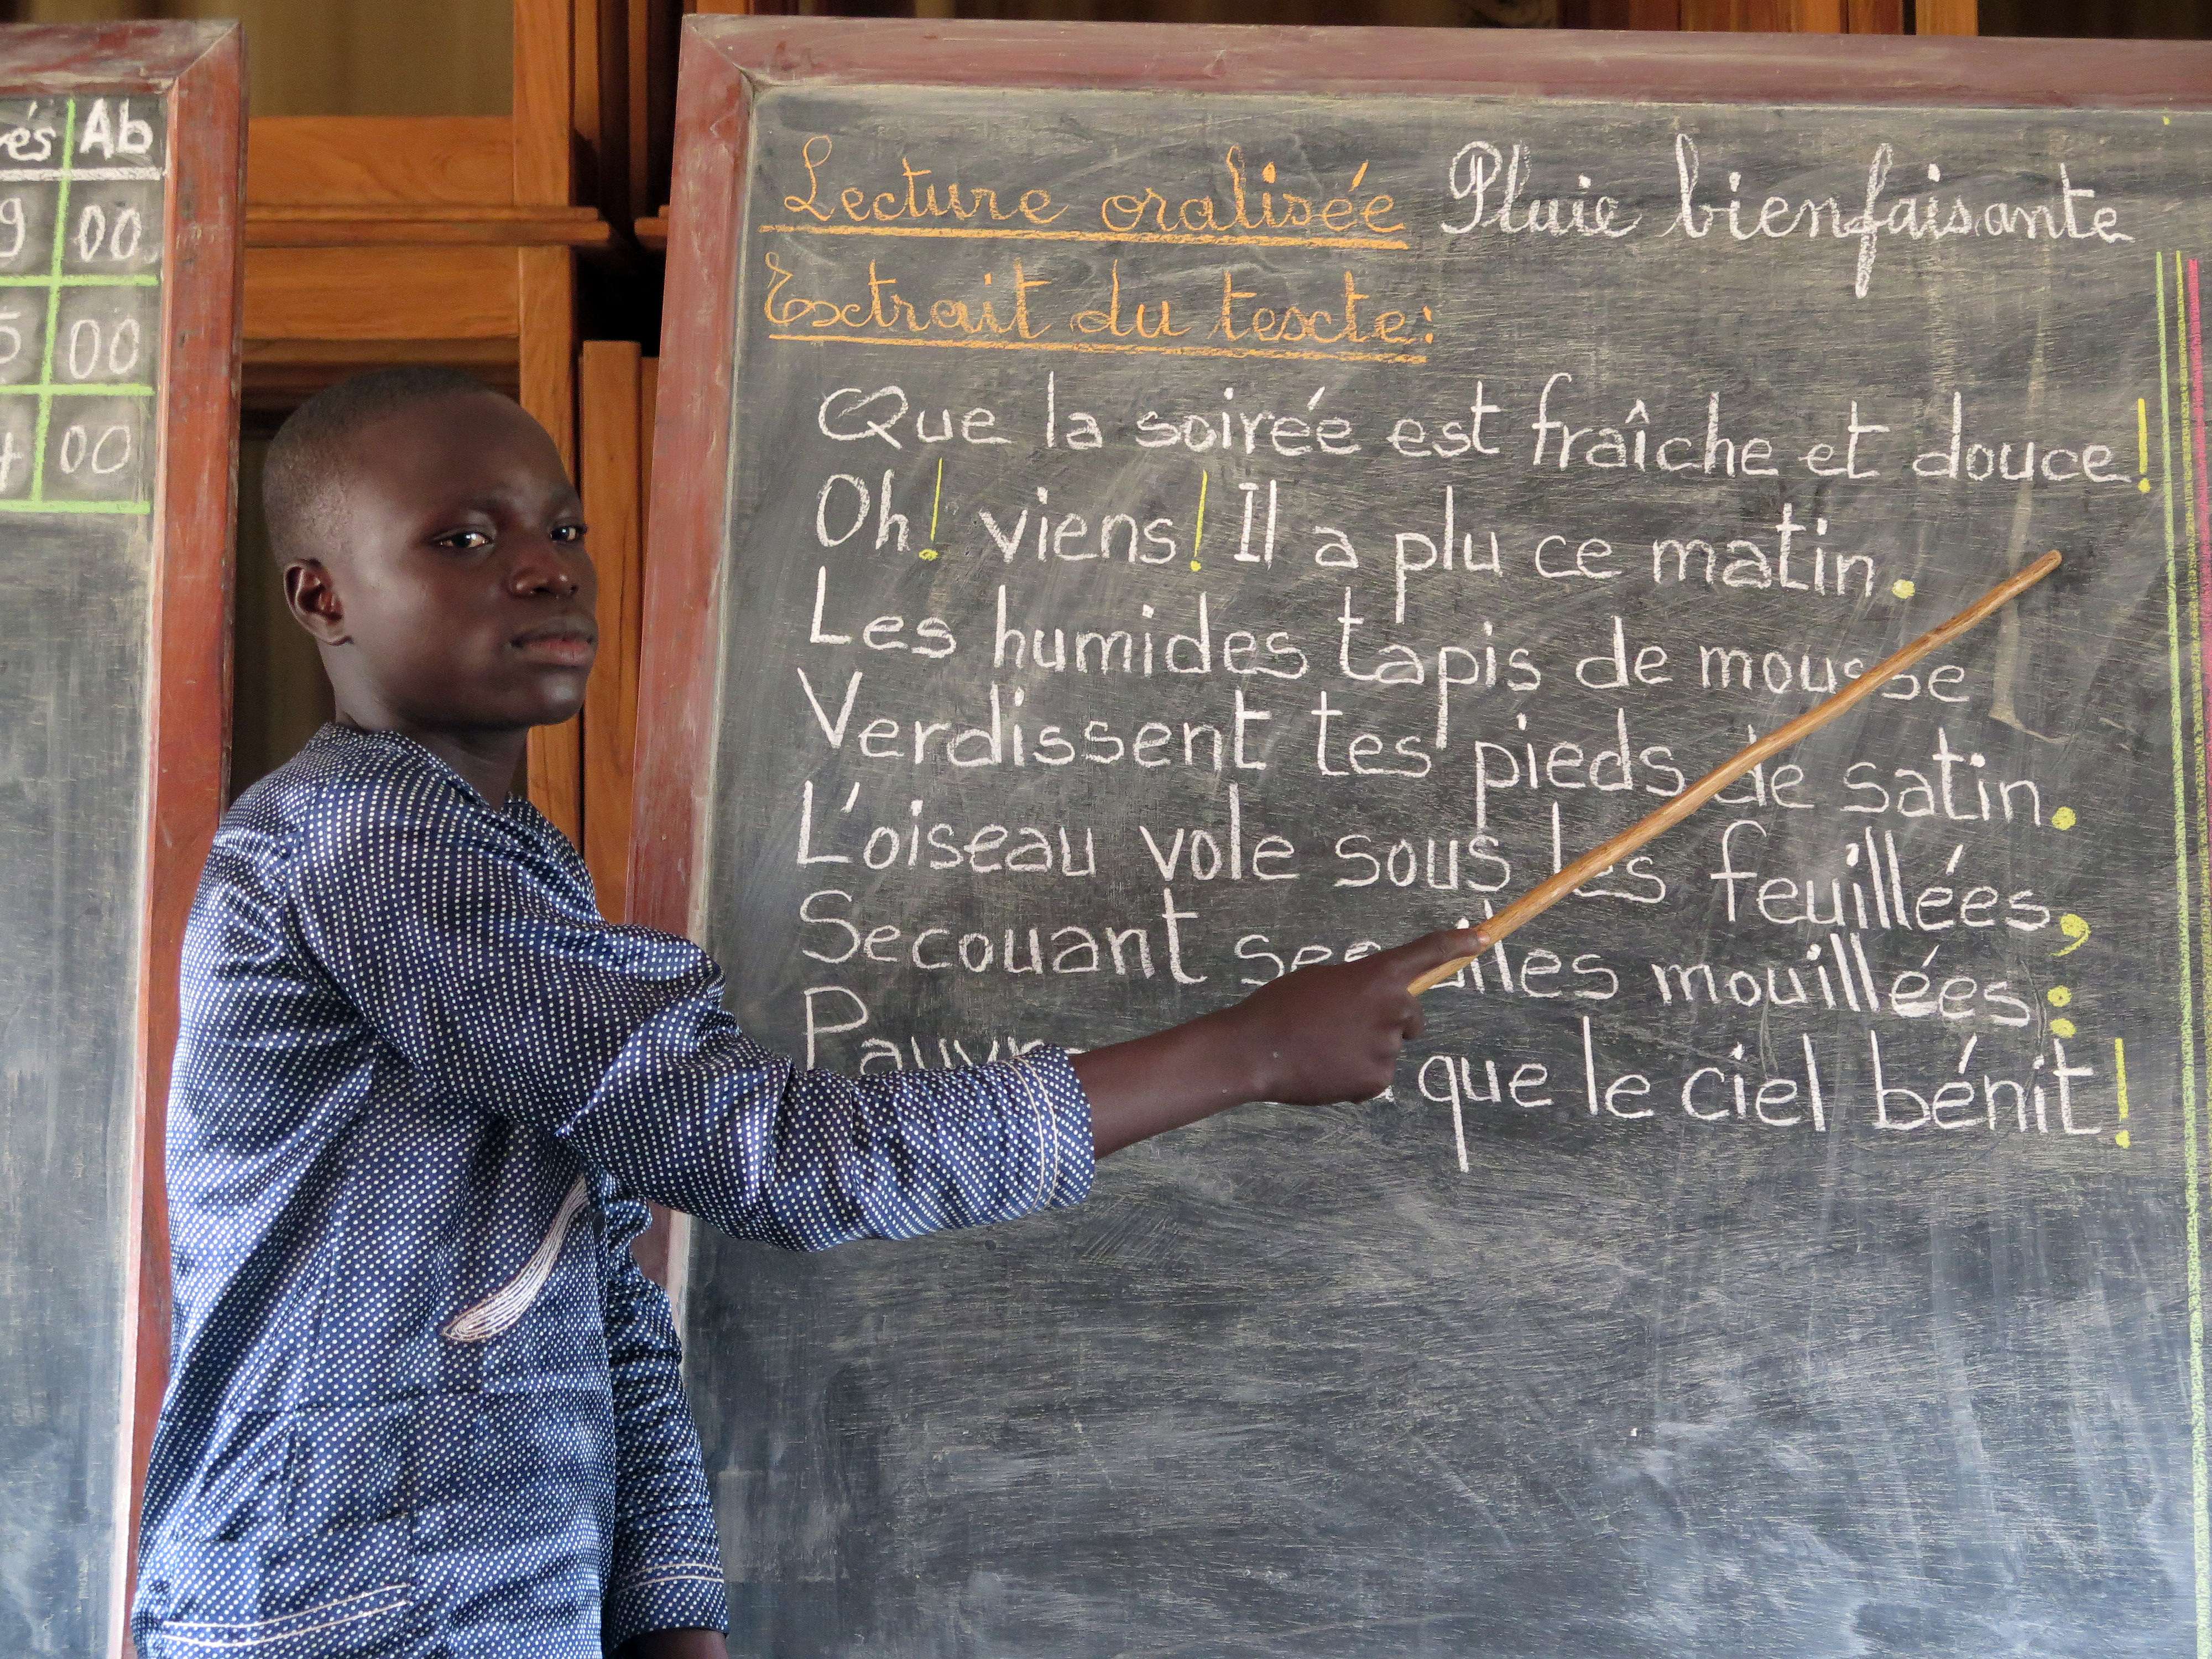 Ab
9 00
5 00
00
Lecture oralisée Pluie bienfaisante
Extrait du texte:
Que la soirée est fraîche et douce!
Oh! viens! Il a plu ce matin.
Les humides tapis de mousse
Verdissent tes pieds de satin.
L'oiseau vole sous les feuillées,
Secouant ses ailes mouillées:
que le ciel bénit!